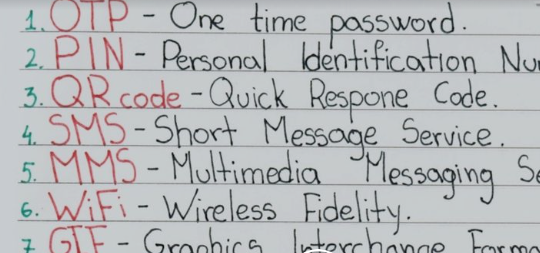 1. OTP - One time password.
2. PIN - Personal Identification Nu
3. QR code - Quick Respone Code.
4. SMS - Short Message Service.
5. MMS - Multimedia Messaging Se
6. WiFi - Wireless Fidelity.
7. GIF - Graphics Interchange Forma